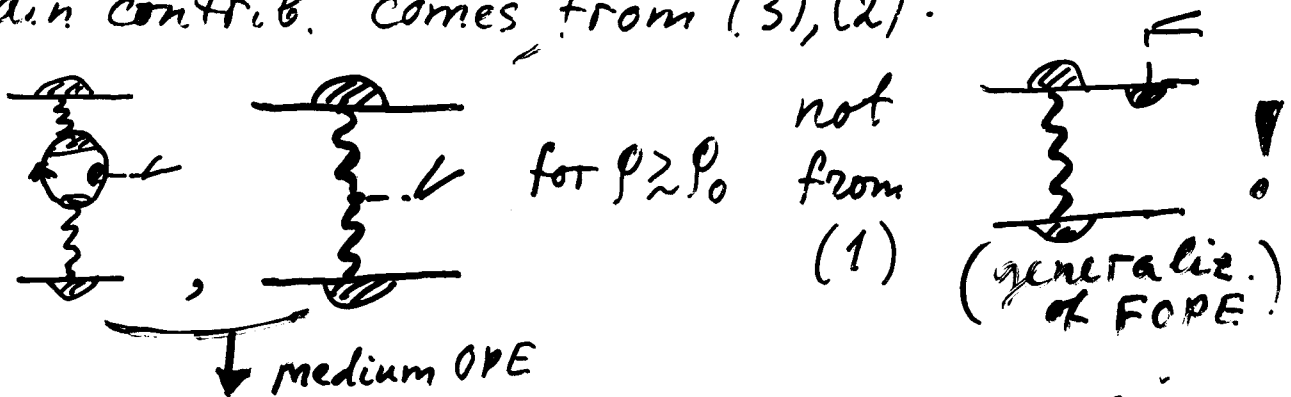 contrib. comes from (3),(2).
not
for ρ ≳ ρ₀ from
(1)
(generaliz.
of FOPE)
!
,
medium OPE